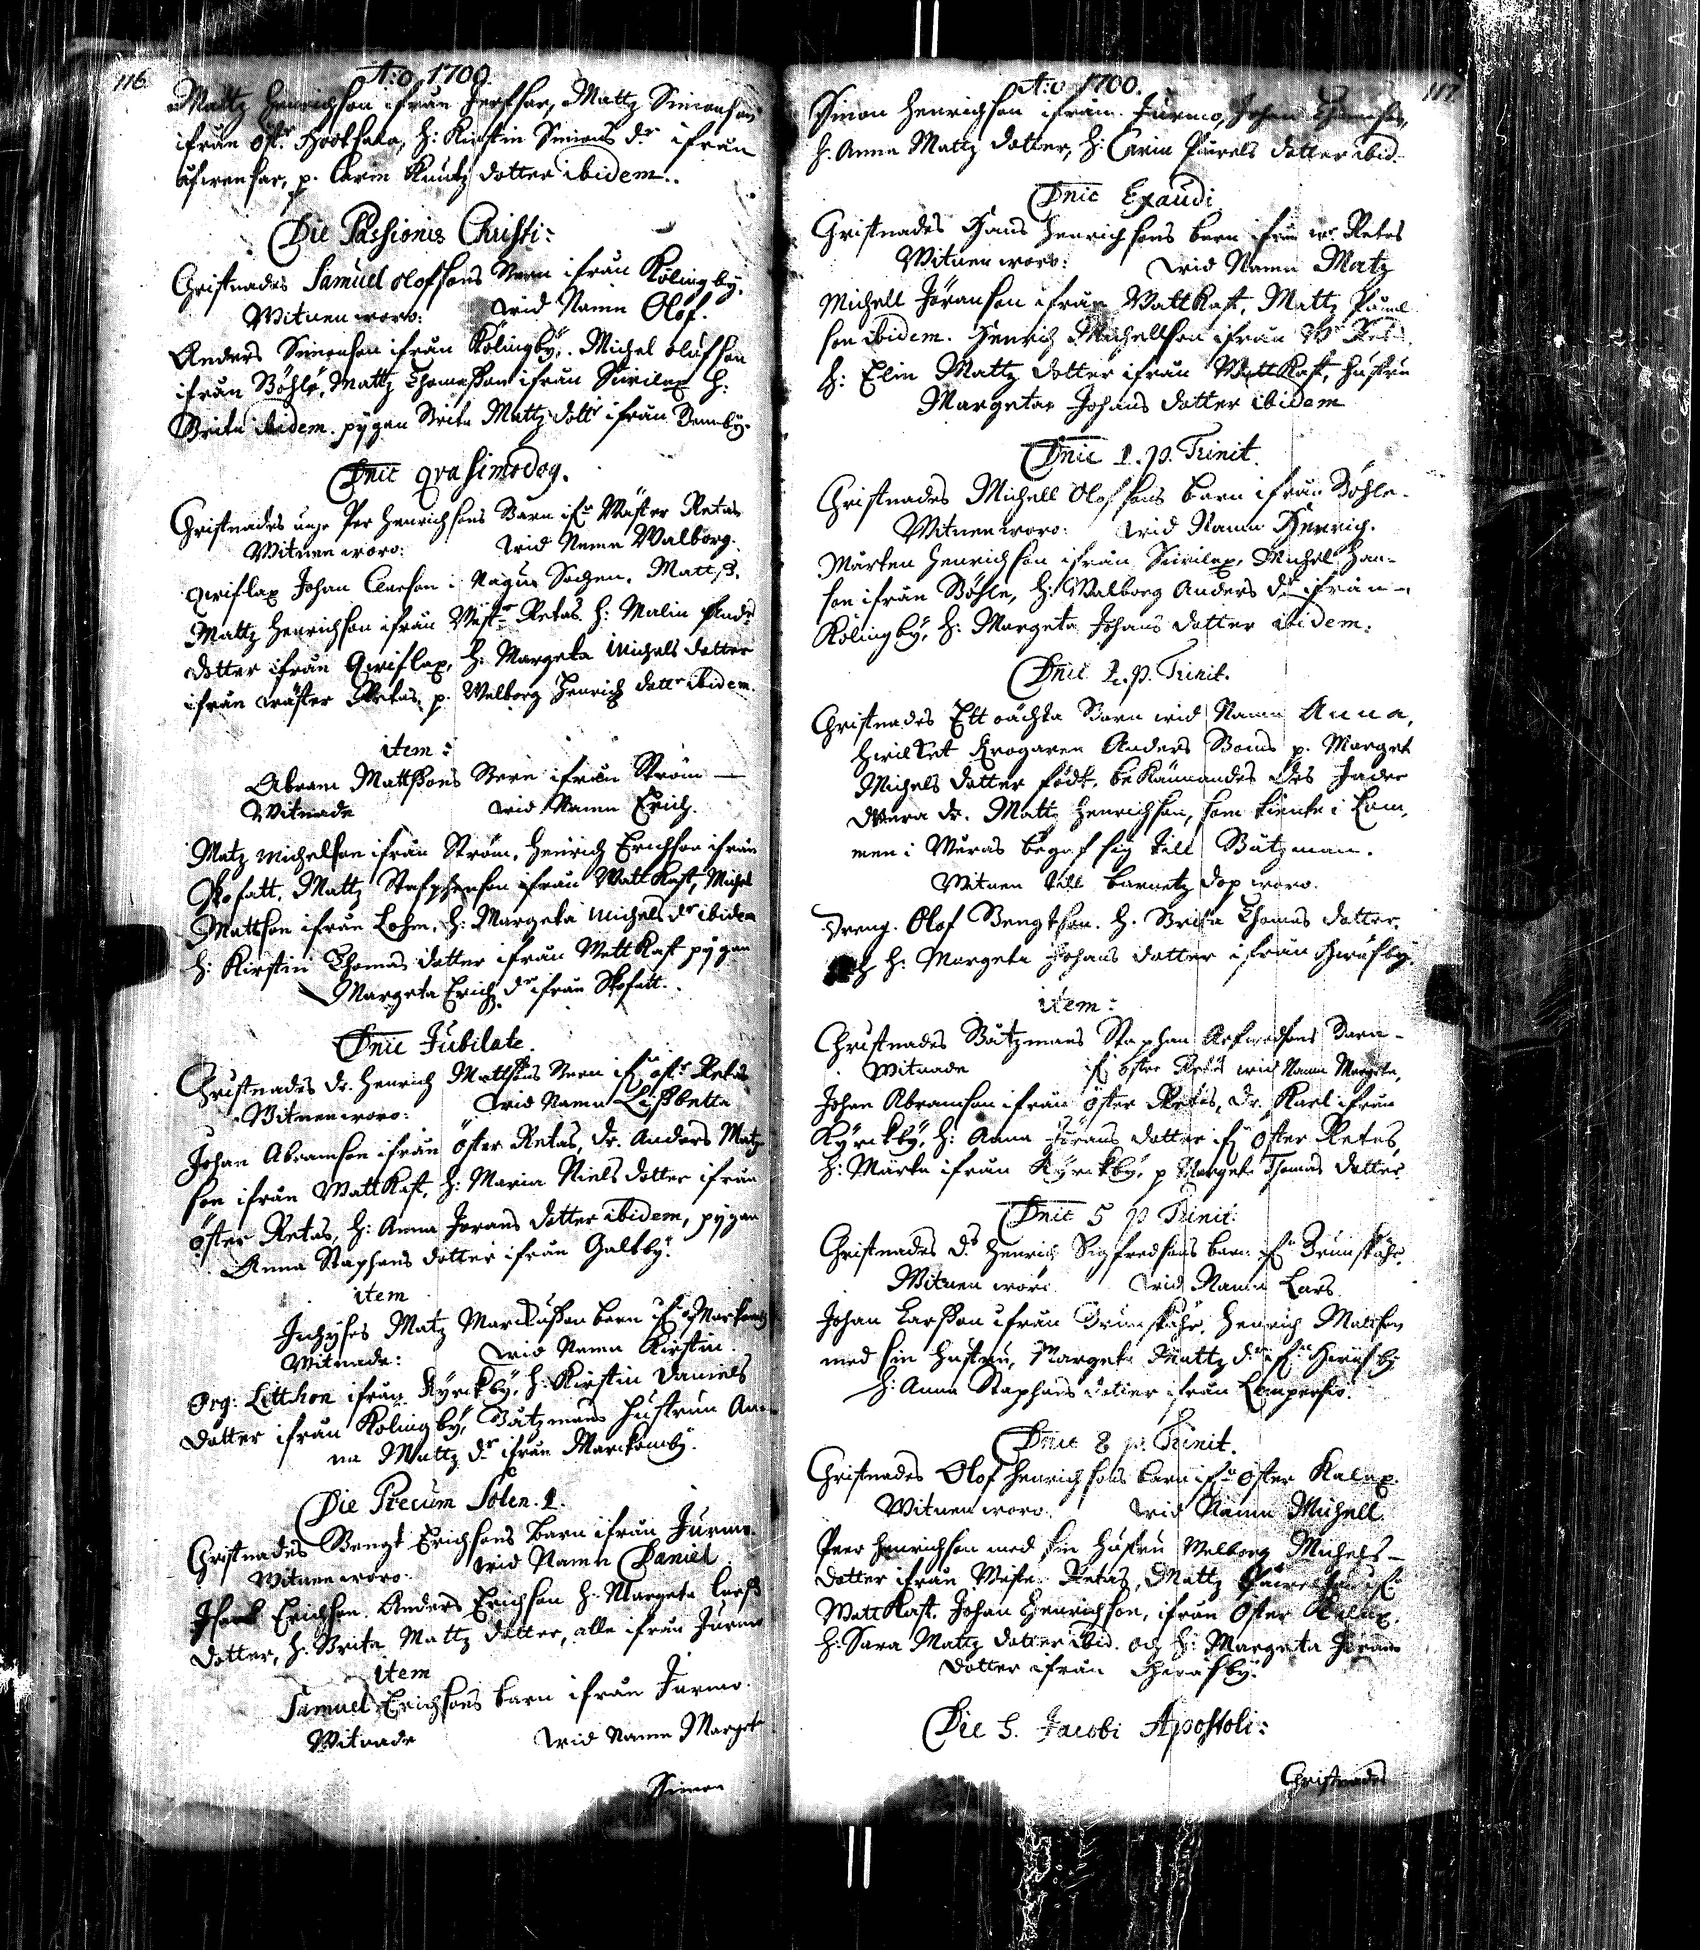 116
A:o 1700.
Mattz Henrichson ifrån Jerfsar, Mattz Simonson
ifrån Öst. Hootsala, H: Kirstin Simons dr ifrån
p. Carin Knutz dotter ibidem.
Die Passionis Christi:
Christnades Samuel Olofsons Barn ifrån Kölingby,
Witnen woro: wid Namn Olof.
Anders Simonson ifrån Kölingby, Michel Olufson
ifrån Böhle, Mattz Thomasson ifrån H:
Brita ibidem. pygan Brita Mattz dottr ifrån
Dnic Qvasimodog.
Christnades unge Per Henrichsons Barn ifr Wäster Retas
Witnen woro: wid Namn Walborg.
Qwiflax Johan Clarson i Nagu Sochen.
Mattz Henrichson ifrån Wästr Retas. H: Malin Andr
dotter ifrån Qwiflax, H: Margeta Michels dotter
ifrån Wäster Retas, p. Walborg Henrich dottr ibidem.
item:
Abram Mattsons Barn ifrån Ström
Witnade wid Namn Erich.
Matz Michelson ifrån Ström, Henrich Erichson ifrån
Skofatt. Mattz Staphanson ifrån Wattkast, Michel
Mattson ifrån Lohm, H: Margeta Michels dr ibidem
H: Kirstin Thomas dotter ifrån Wattkast pygan
Margeta Erich dr ifrån Skofatt.
Dnic Jubilate.
Christnades dr. Henrich Mattsons Barn ifr östr Retas
Witnen woro: wid Namn Lijsbetta
Johan Abramson ifrån Öster Retas, dr. Anders Matz
son ifrån Wattkast, H: Maria Niels dotter ifrån
öster Retas, H: Anna Jorans dotter ibidem, pygan
Anna Staphans dotter ifrån Galtby.
item
Matz Marckusson barn ifr Markomby
Witnade: wid Namn Kirstin.
Org: Litthon ifrån Kyrckby, H: Kirstin Daniels
dotter ifrån Kölingby, Båtzmans Hustrun An-
na Mattz dr ifrån Marckomby.
Die Precum Solen. 1.
Christnades Bengt Erichsons Barn ifrån Jurmo.
Witnen woro: wid Namn Daniel
Isack Erichson. Anders Erichson H: Margeta Lars
dotter, H: Brita Mattz dotter, alla ifrån Jurmo
item
Samuel Erichsons barn ifrån Jurmo.
Witnade wid Namn Marget
Simon
117
A:o 1700.
Simon Henrichson ifrån Jurmo, Johan Thomason,
H. Anna Mattz dotter, H: Carin Påvels dotter ibid.
Dnic Exaudi
Christnades Hans Henrichsons barn ifrån wr Retas
Witnen woro: wid Namn Matz
Michell Jöranson ifrån Wattkast, Mattz Påuel
son ibidem. Henrich Michellson ifrån Wr Retas,
H: Elin Mattz dotter ifrån Wattkast, Hustru
Margeta Johans dotter ibidem
Dnic 1. p. Trinit.
Christnades Michell Olofsons barn ifrån Böhle.
Witnen woro: wid Namn Henrich.
Mårten Henrichson ifrån Michel Han-
son ifrån Böhle, H: Walborg Anders dr ifrån
Kölingby, H: Margeta Johans dotter ibidem.
Dnic 2. p. Trinit.
Christnades Ett oächta Barn wid Namn Anna,
hwilket Krogaren Anders Boms p. Marget
Michels dotter födt, bekännandes des fader
wara dr. Mattz Henrichson, som tiente i Lam,
men i Wåras begaf sig till Båtzman.
Witnen till barnetz dop woro.
Dreng. Olof Bengtson. H. Brita Thomas dotter.
H: Margeta Johans dotter ifrån Heråsby.
item:
Christnades Båtzmans Staphan Arfwedsons Barn
Witnade ifr öster Retas wid Namn Margeta,
Johan Abramson ifrån öster Retas, dr. Karl ifrån
Kyrckby, H: Anna Jörans dotter ifr öster Retas,
H: Märta ifrån Kyrckby, p Margeta Thomas dotter
Dnic 5 p Trinit:
Christnades dr Henrich Sigfredsons barn ifr Brunskähr.
Witnen woro wid Namn Lars
Johan Larsson ifrån Brunskähr, Henrich Mattson
med sin Hustru, Margeta Mattz dr ifr Heråsby
H: Anna Staphans dotter ifrån Lempersiö.
Dnic 8 p. Trinit.
Christnades Olof Henrichsons barn ifr Öster Kalax.
Witnen woro. wid Namn Michell.
Peer Henrichson med sin Hustru Walborg Michels
dotter ifrån Wäster Retas, Mattz Påwelson ifr
Wattkast. Johan Henrichson, ifrån Öster Kalax.
H: Sara Mattz dotter ibid. och H: Margeta Jörans
dotter ifrån Heråsby.
Die S. Jacobi Apostoli:
Christnades